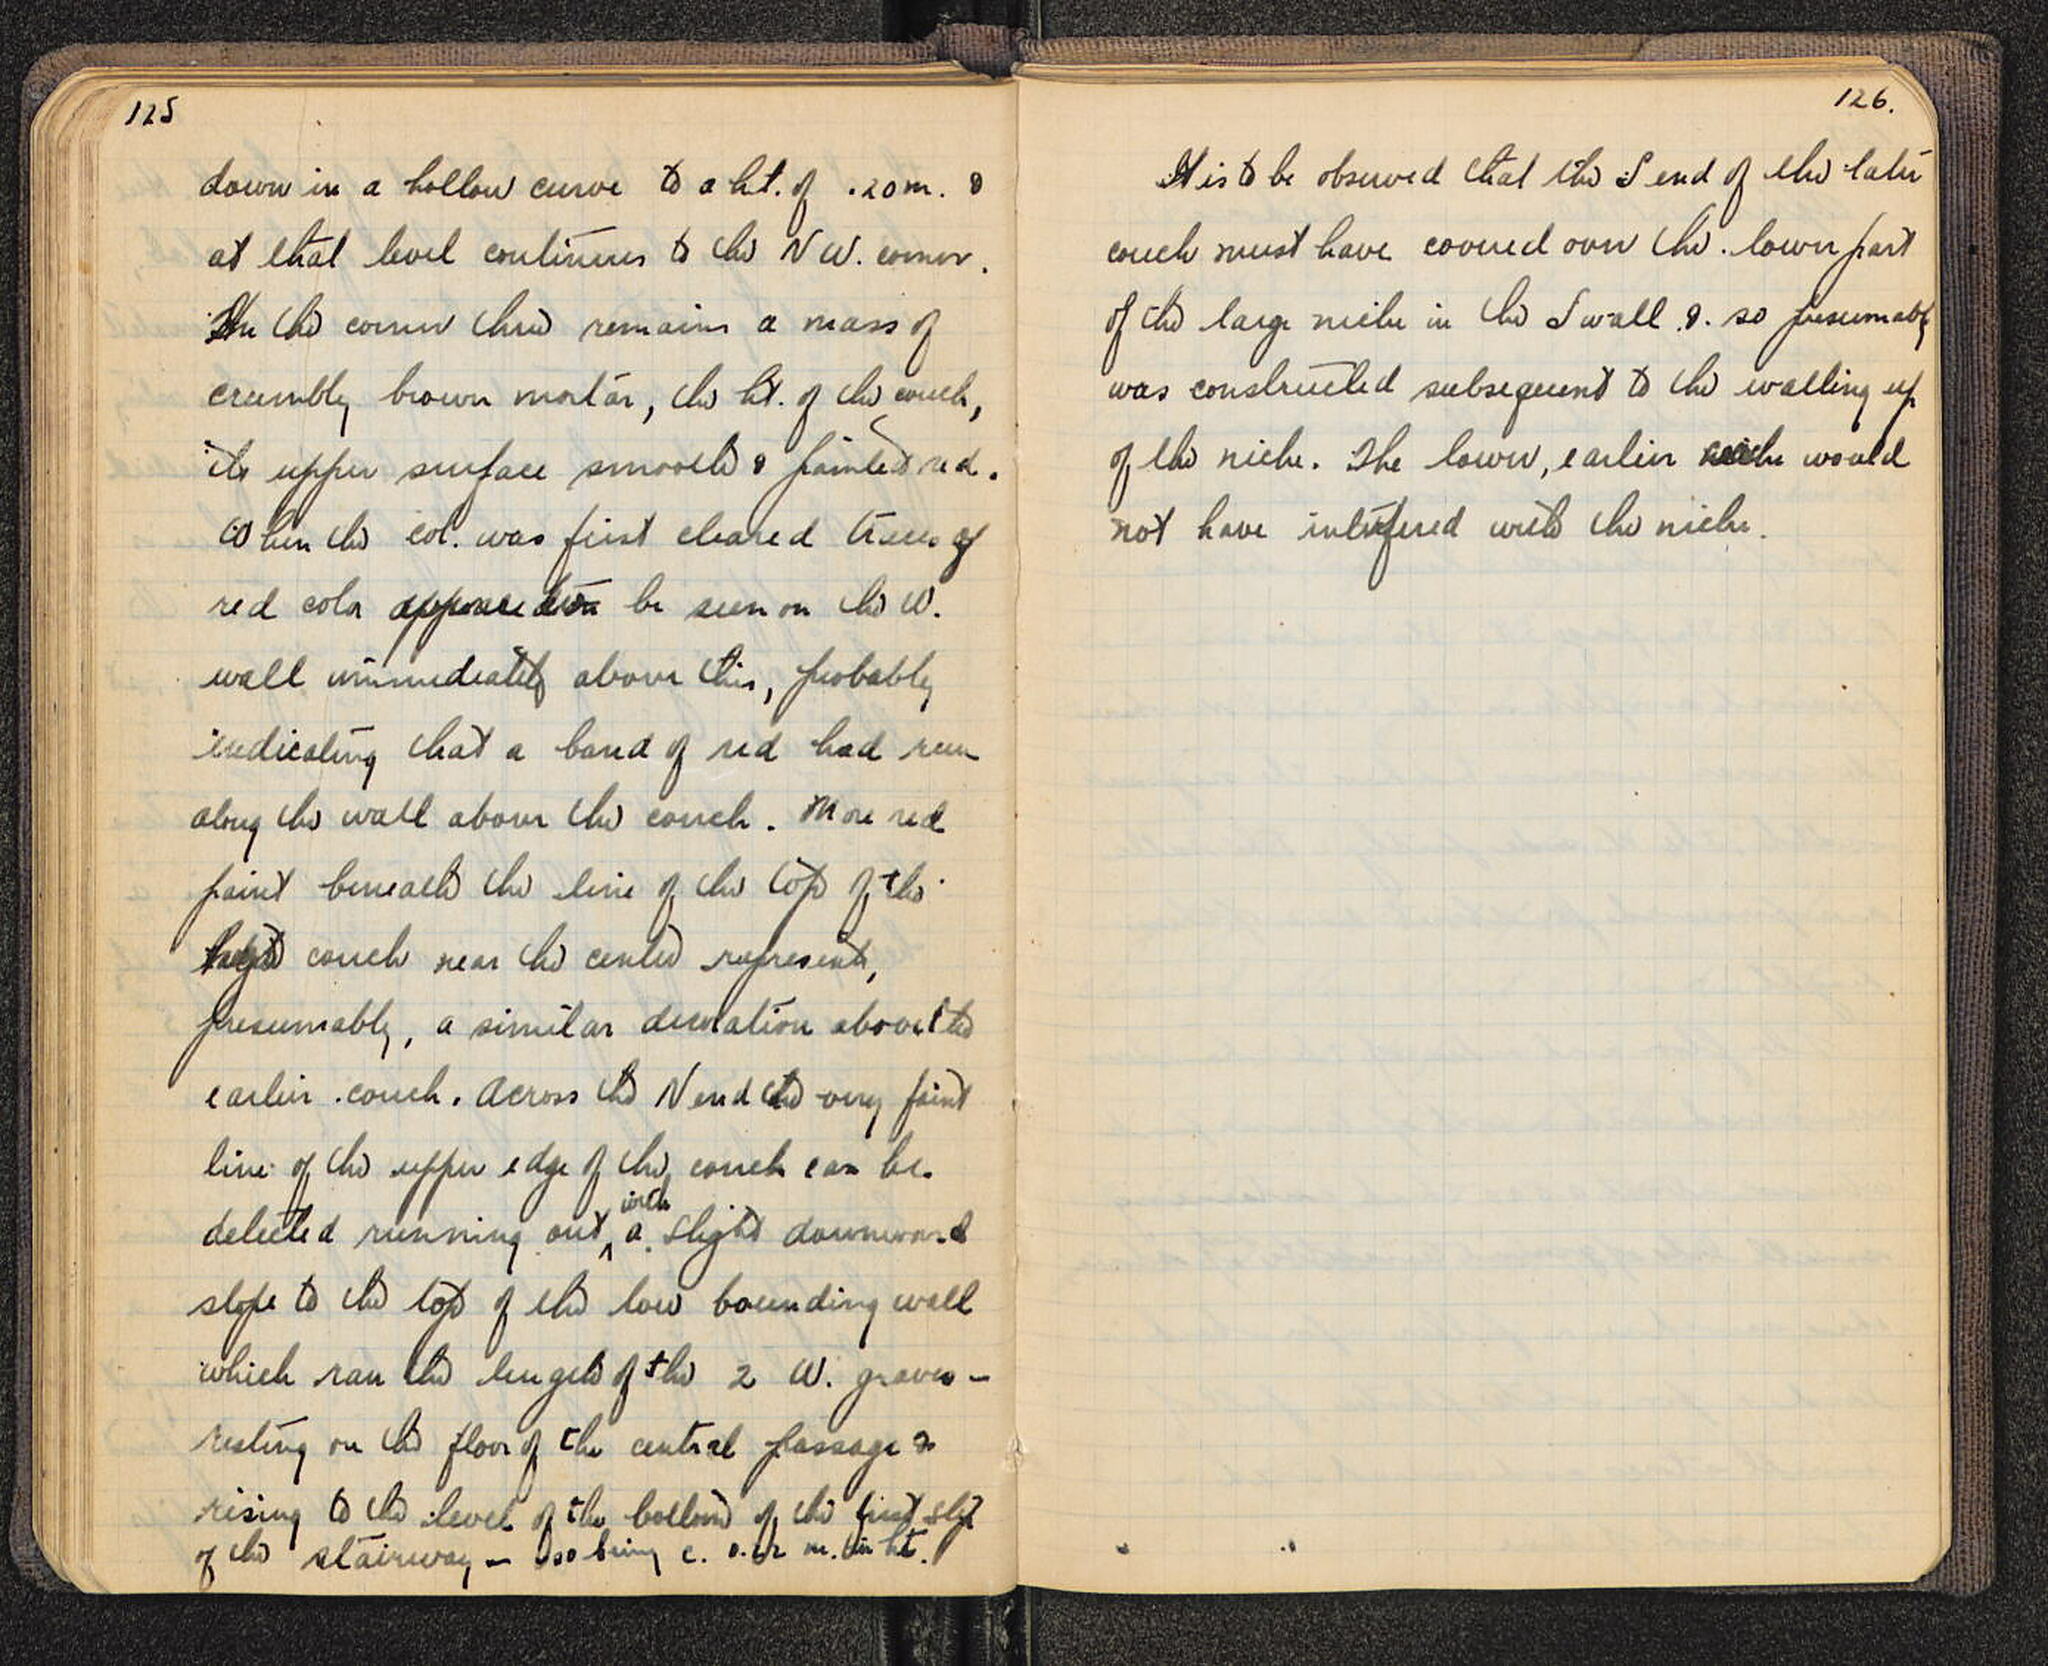 125
down in a hollow curve to a ht. of .20 m. &
at that level continues to the N W. corner.
In the corner there remains a mass of
crumbly brown mortar, the ht. of the couch,
its upper surface smooth & painted red.
When the col. was first cleared traces of
red color appeared to be seen on the W.
wall immediately above this, probably
indicating that a band of red had run
along the wall above the couch. More red
paint beneath the line of the top of the
couch near the center represents,
presumably, a similar decoration above the
earlier couch. Across the N end the very faint
line of the upper edge of the couch can be
detected running out with a slight downward
slope to the top of the low bounding wall
which ran the length of the 2 W. graves –
resting on the floor of the central passage &
rising to the level of the bottom of the first step
of the stairway – so being c. m. in ht.
126.
It is to be observed that the S end of the later
couch must have covered over the lower part
of the large niche in the S wall & so presumably
was constructed subsequent to the walling up
of the niche. The lower, earlier would
not have interfered with the niche.